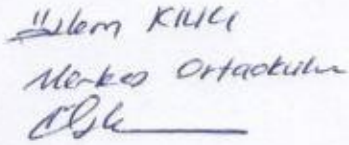 Özlem KILIÇ
Merkez Ortaokulu